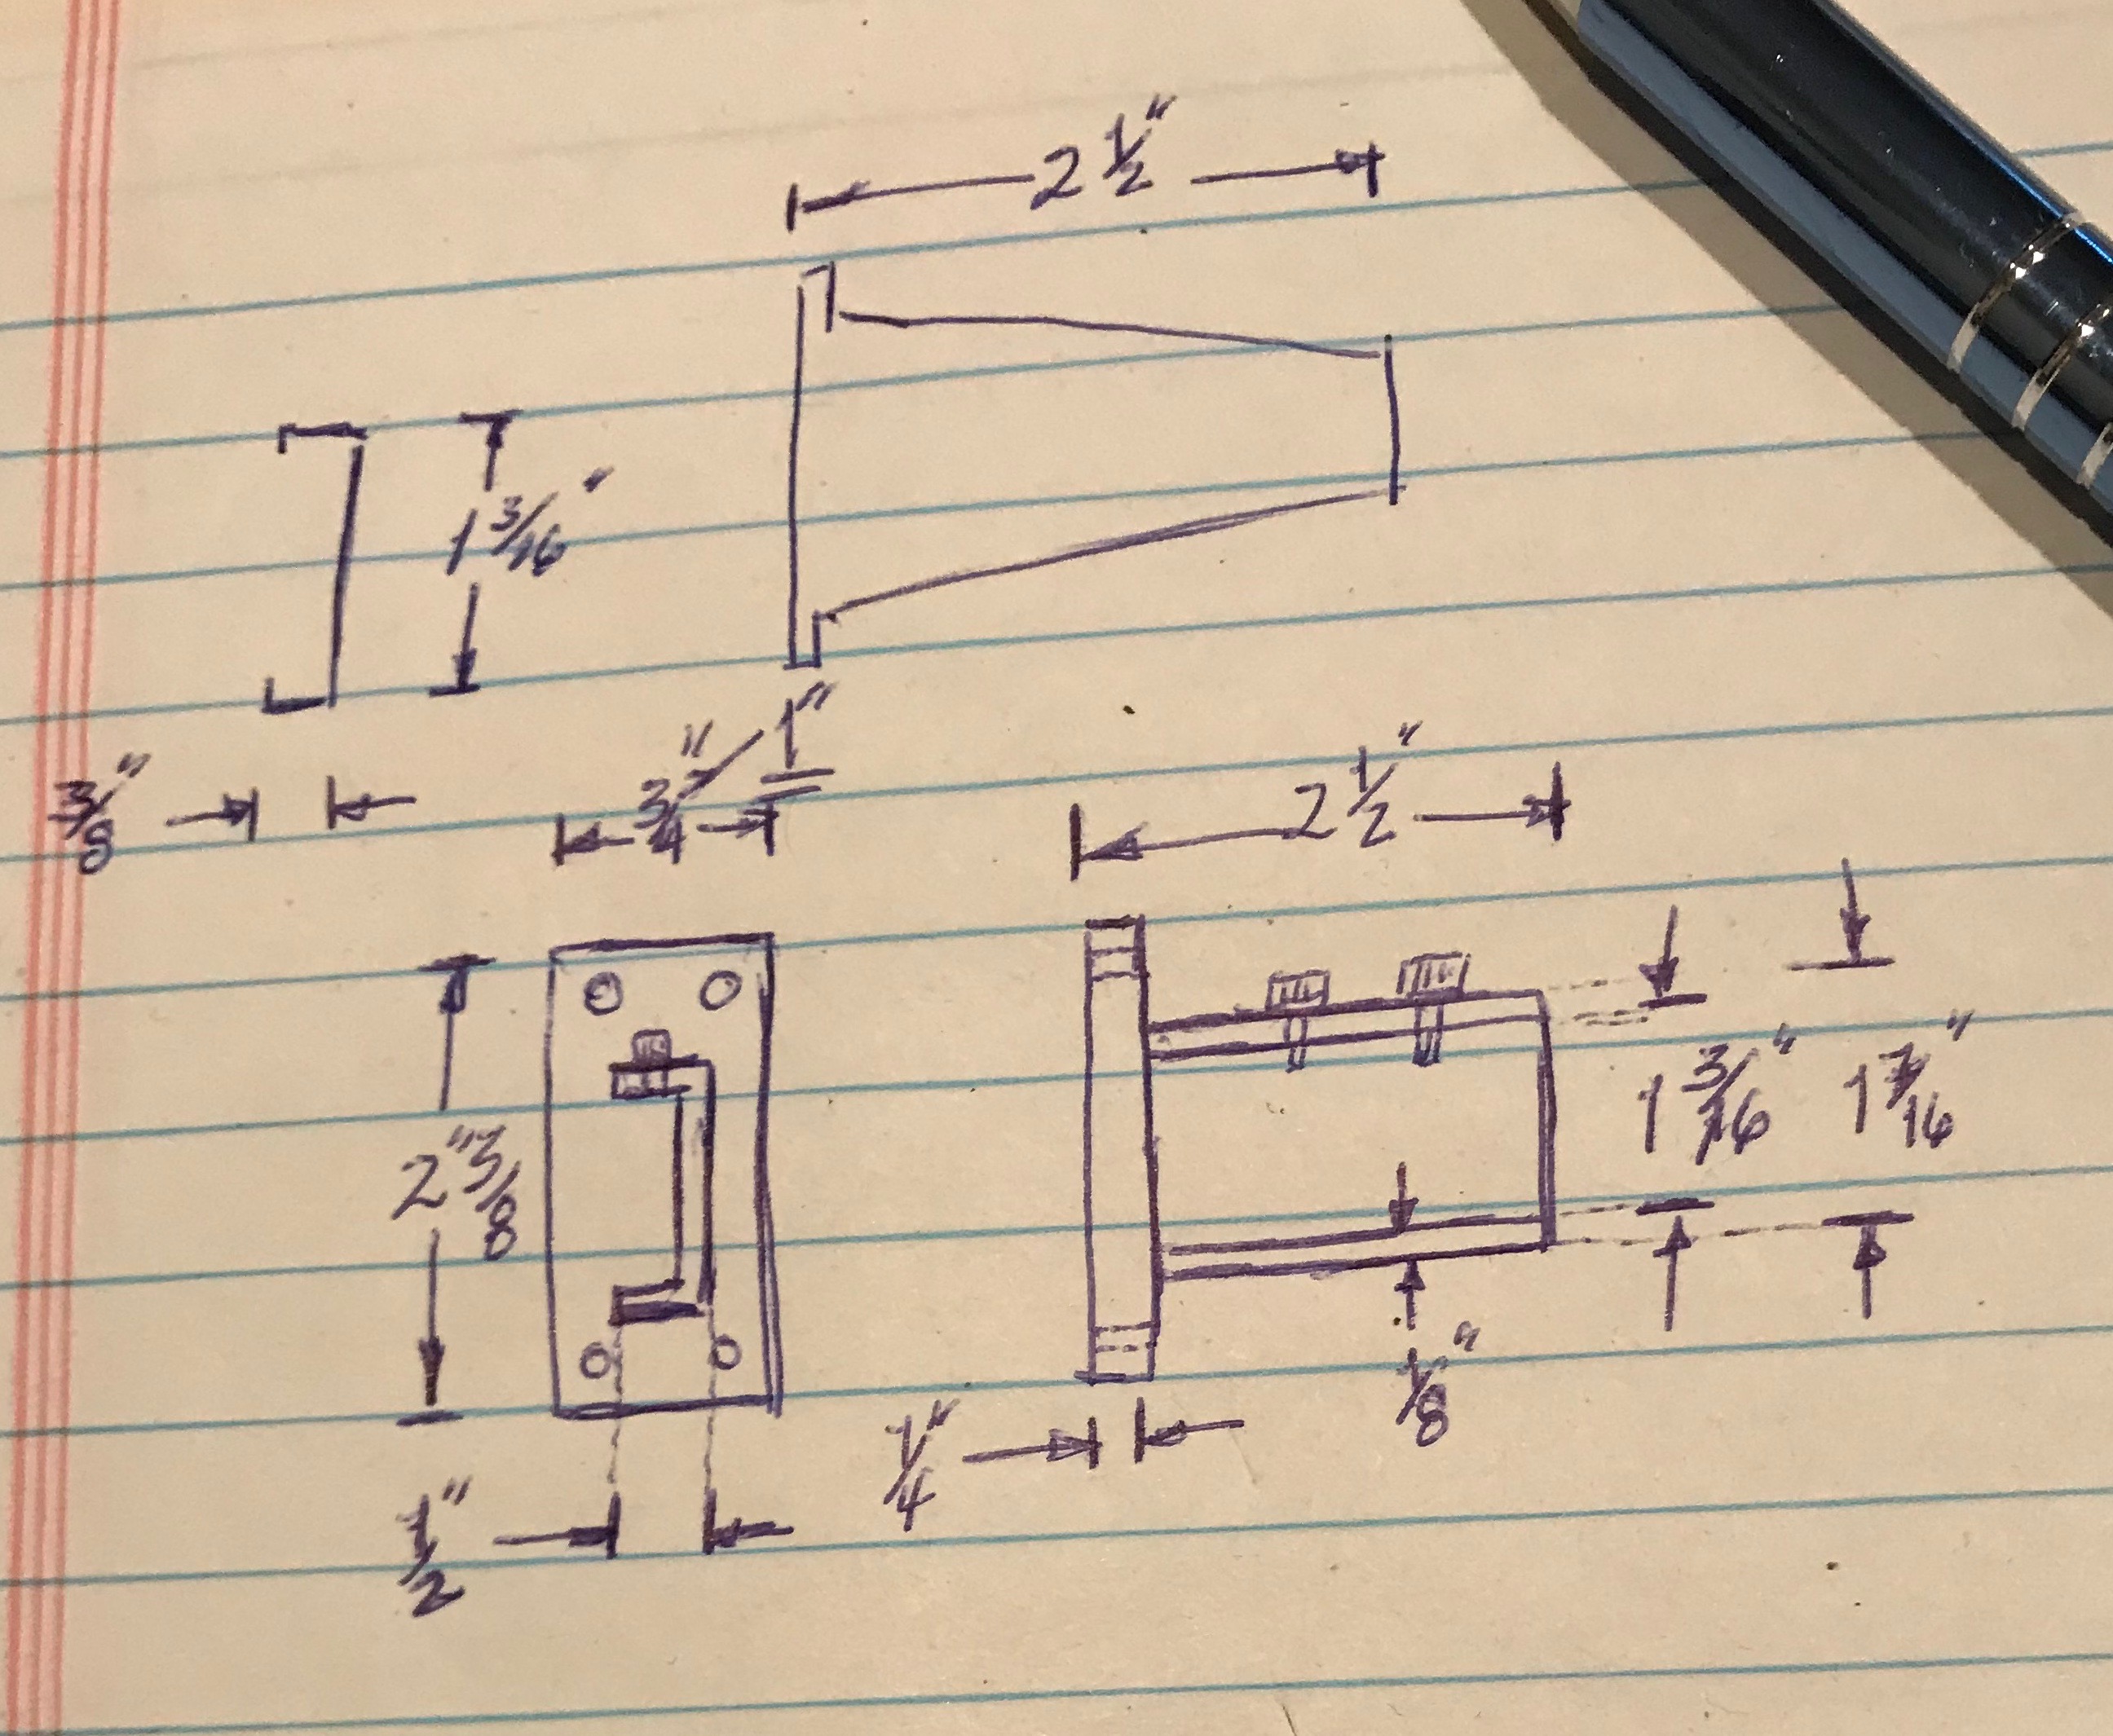 2 1/2"
1 3/16"
3/8"
3/4" / 1"
2 1/2"
2" 3/8
1 3/16"
1 7/16"
1/8"
1/4"
1/2"